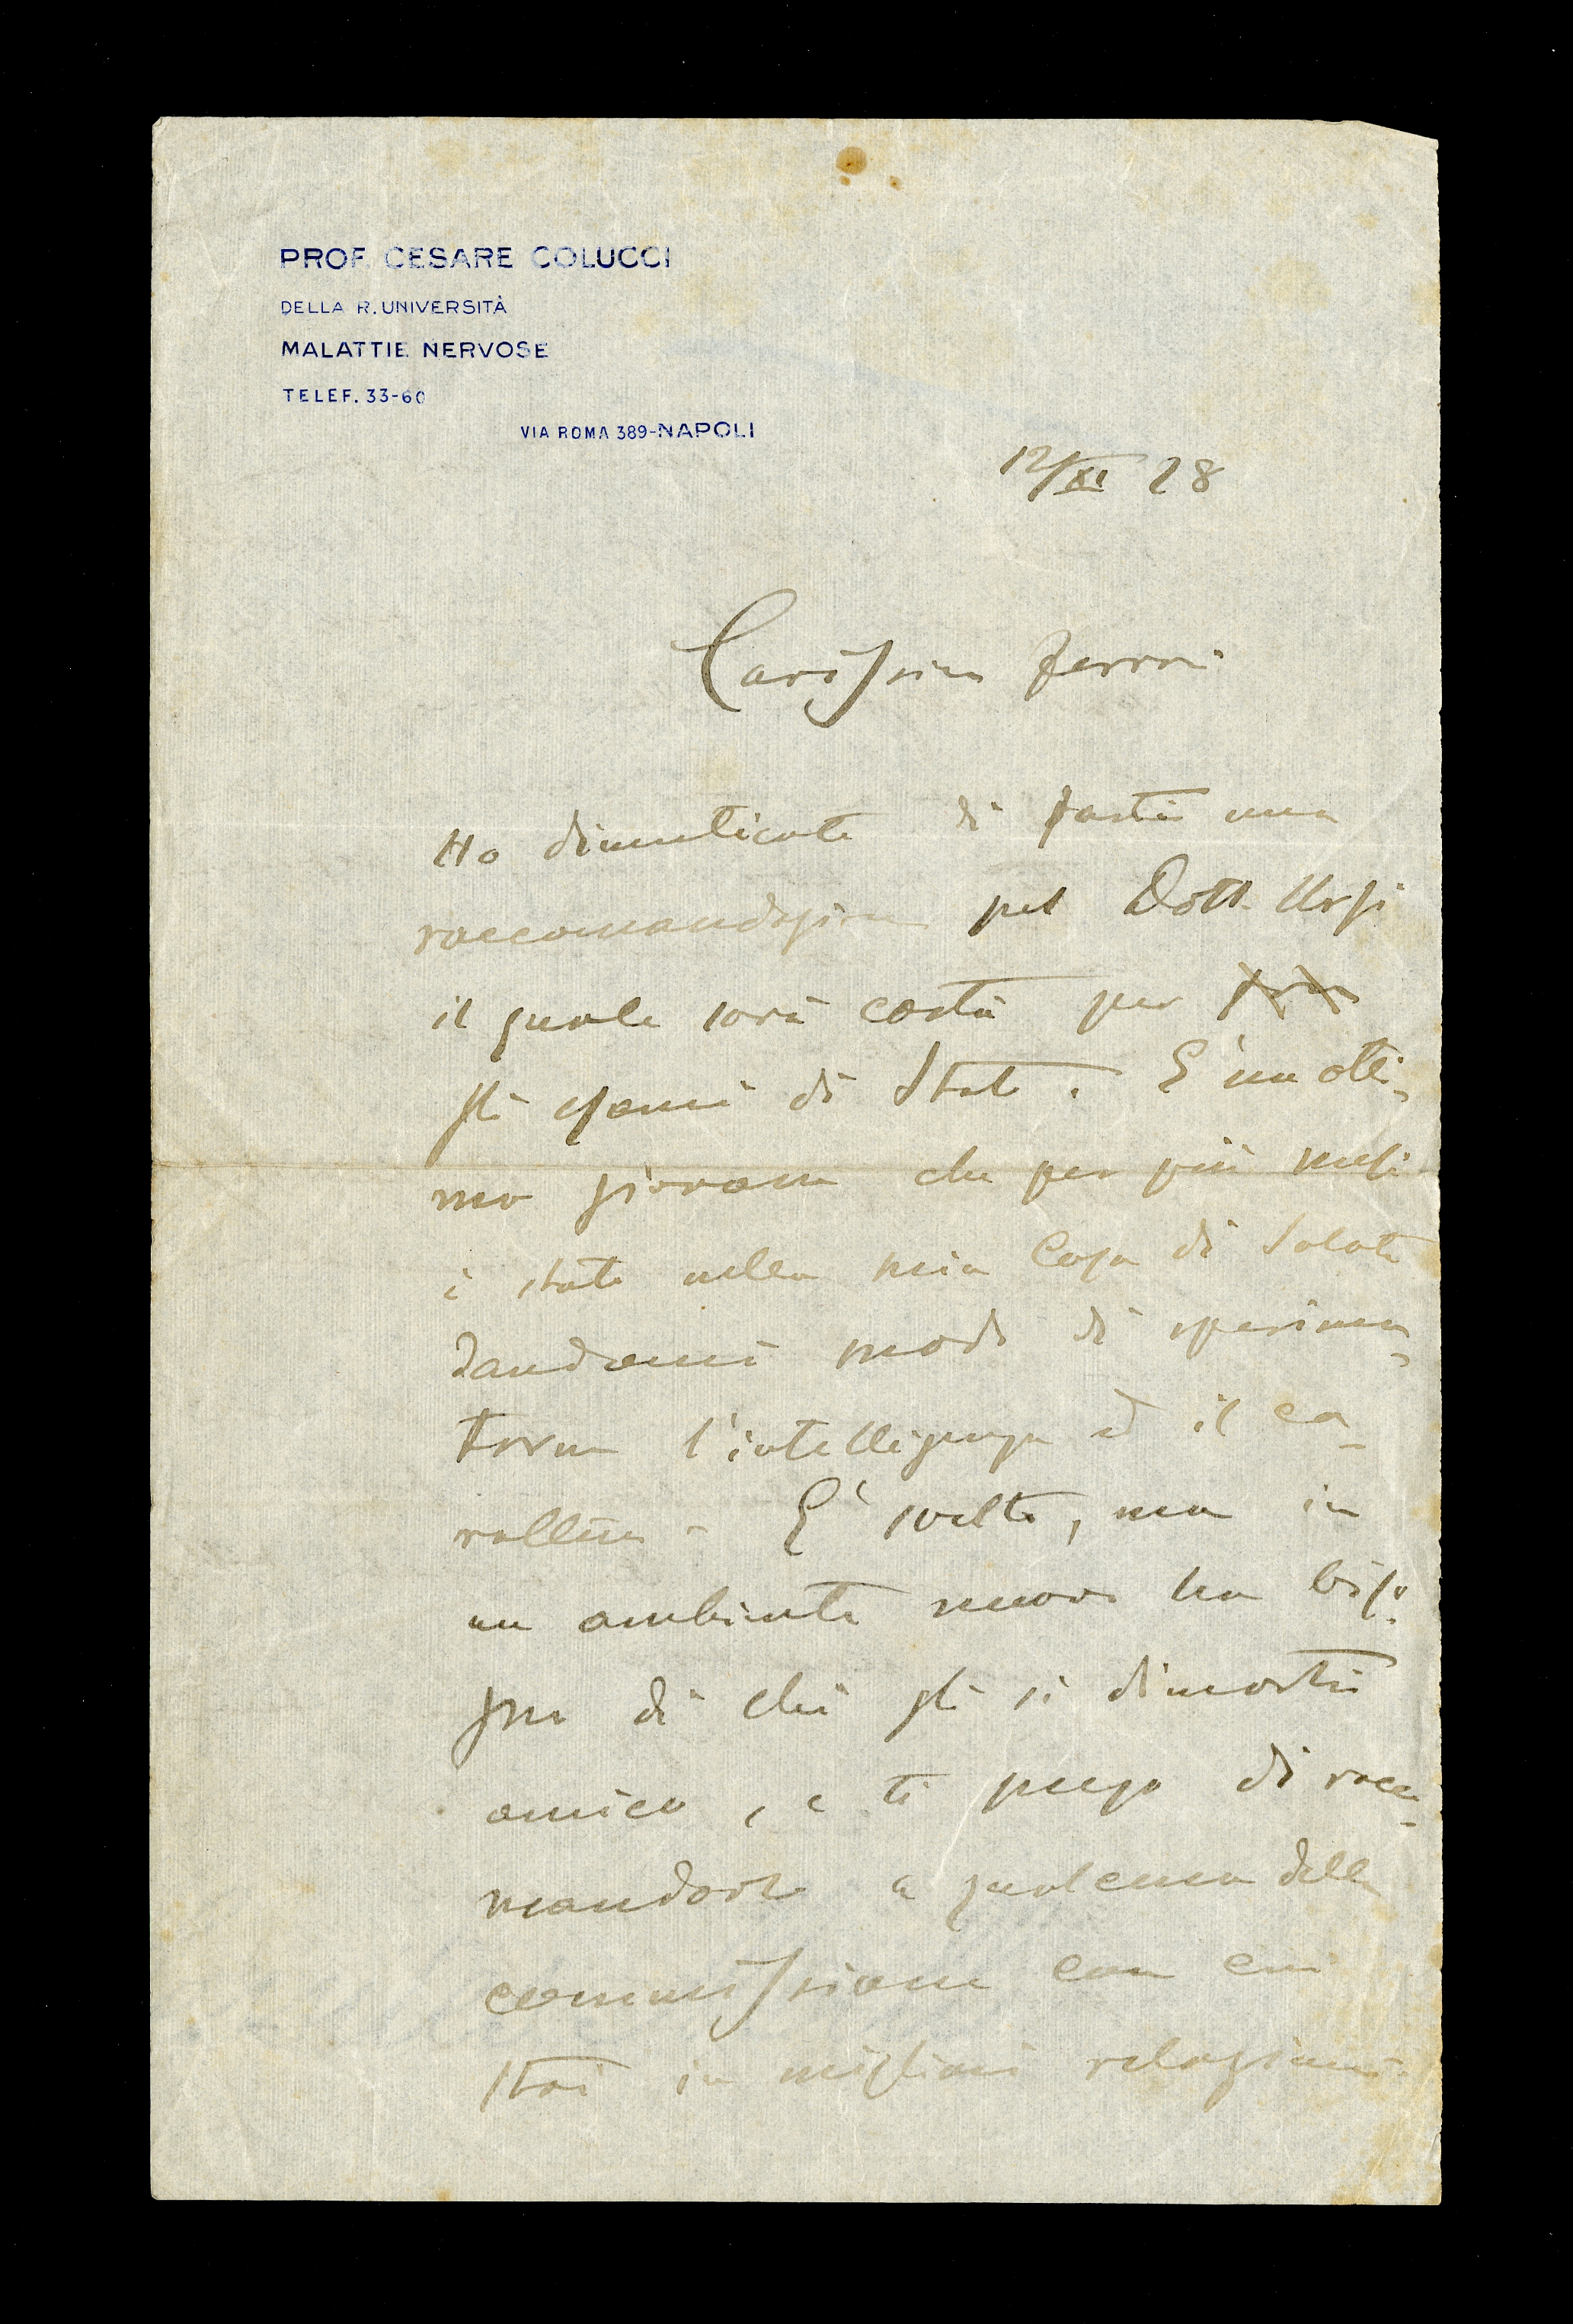 PROF. CESARE COLUCCI
DELLA R. UNIVERSITÀ
MALATTIE NERVOSE
TELEF. 33-60
VIA ROMA 389-NAPOLI
12/XI 28
Carissimo Ferrari
Ho dimenticato di farti una
raccomandazione pel Dott. Ursi
il quale sarà costà per
gli esami di Stato. E' un otti-
mo giovane che per più mesi
è stato nella mia Casa di Salute
dandomi modo di sperimen-
tarne l'intelligenza ed il ca-
rattere - E' svelto, ma in
un ambiente nuovo ha biso-
gno di chi gli si dimostri
amico, e ti prego di racco-
mandarlo a qualcuno della
commissione con cui
stai in migliori relazioni.